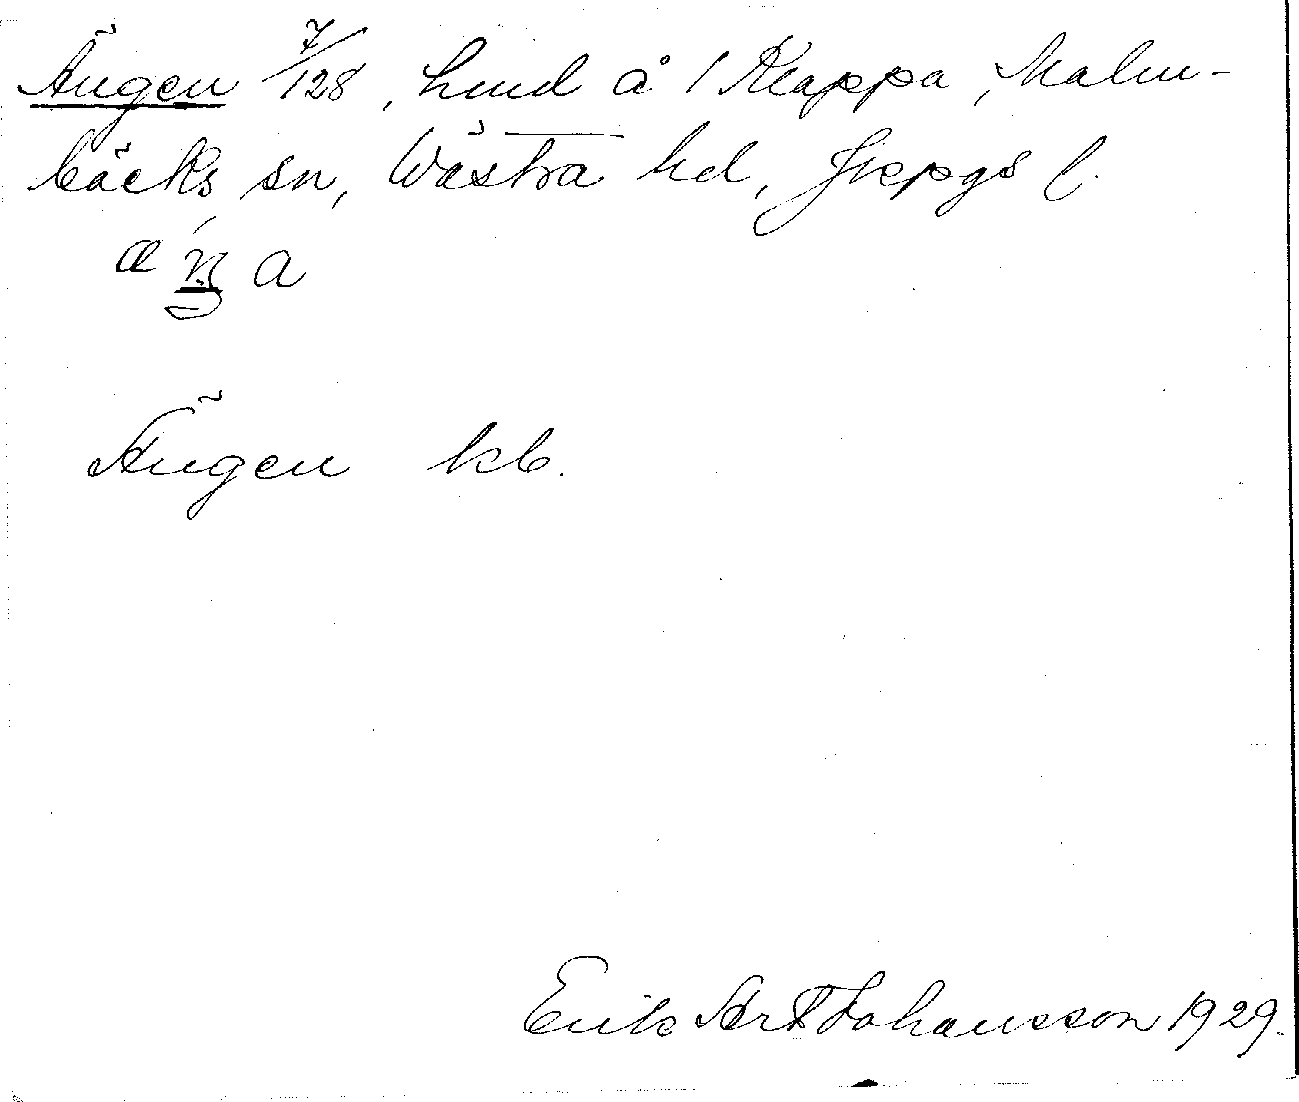 Ängen 7/128, lund å 1 Klappa, Malm-
bäcks sn, Västra hd, Jkpgs l.
Ängen kb.
Erik Art Johansson 1929.